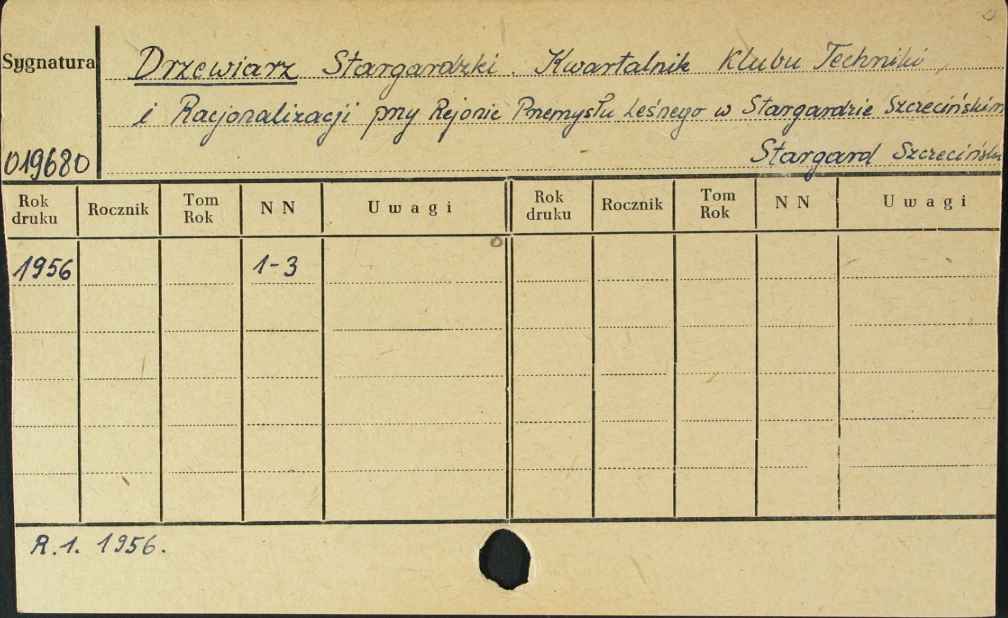 Sygnatura
Drzewiarz Stargardzki. Kwartalnik Klubu Techniki
i Racjonalizacji przy Rejonie Przemysłu Leśnego w Stargardzie Szczecińskim
019680
Stargard Szczeciński
Rok druku Rocznik Tom Rok N N Uwagi Rok druku Rocznik Tom Rok N N Uwagi
1956 1-3
R.1. 1956.